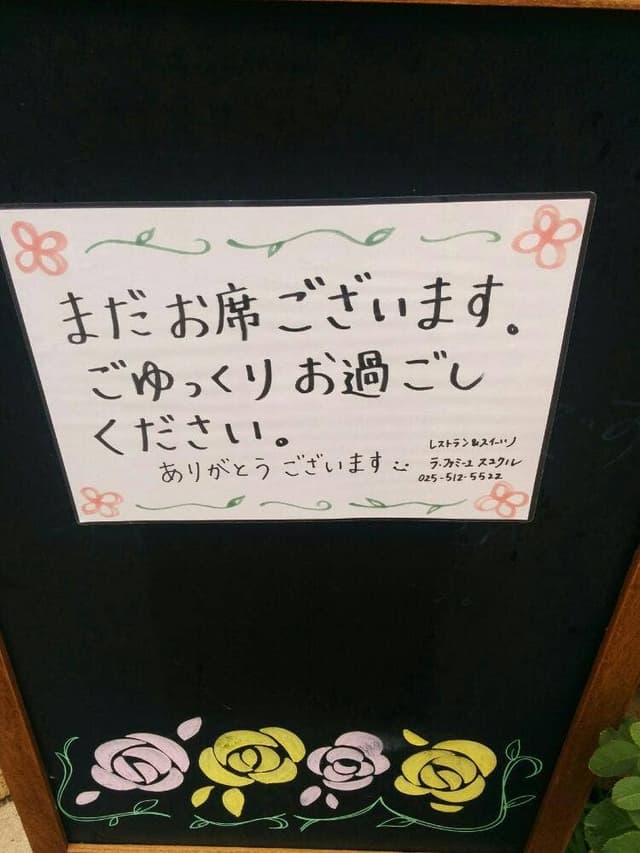 まだお席ございます。
ごゆっくりお過ごし
ください。
ありがとうございます
レストラン&スイーツ
ラ・ファミーユ スユクル
025-512-5522